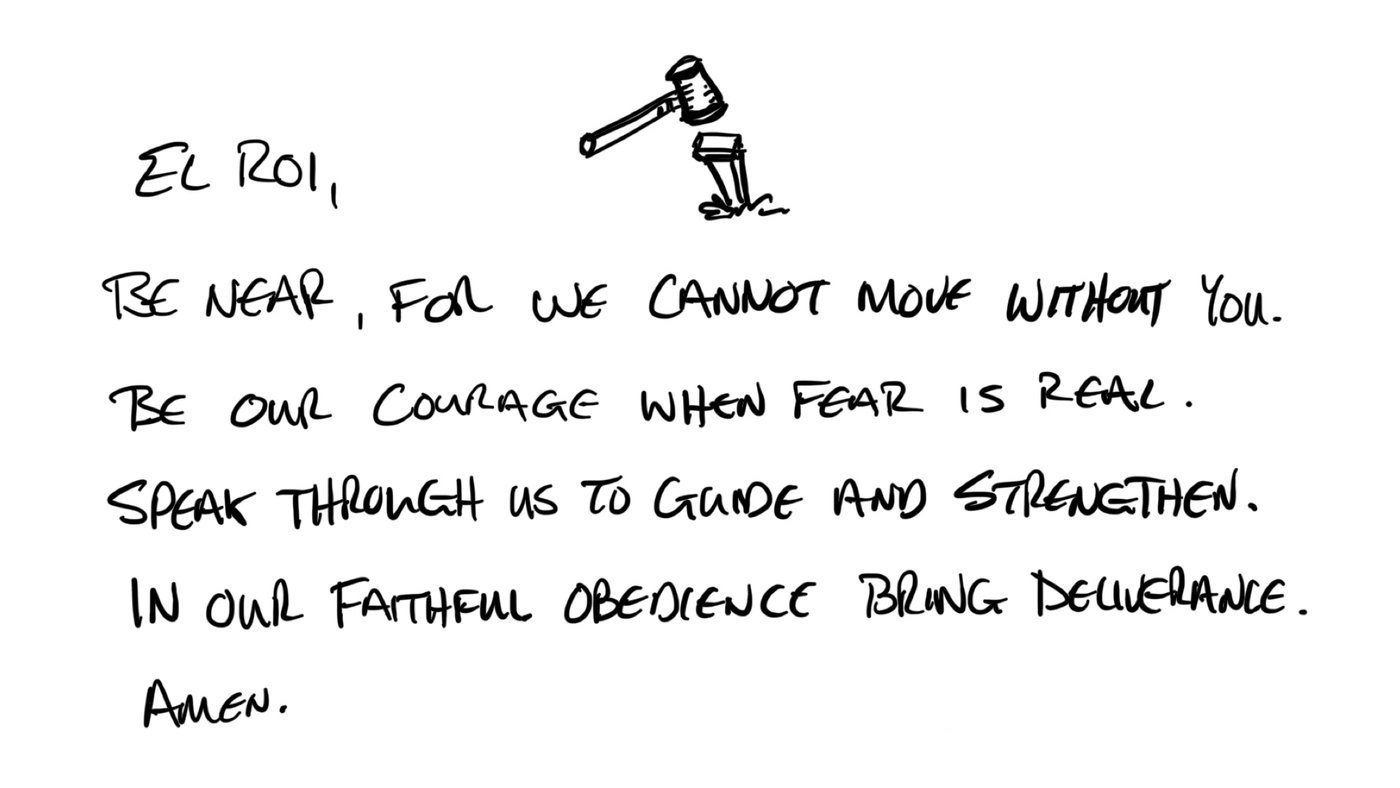 EL ROI,
BE NEAR, FOR WE CANNOT MOVE WITHOUT YOU.
BE OUR COURAGE WHEN FEAR IS REAL.
SPEAK THROUGH US TO GUIDE AND STRENGTHEN.
IN OUR FAITHFUL OBEDIENCE BRING DELIVERANCE.
AMEN.